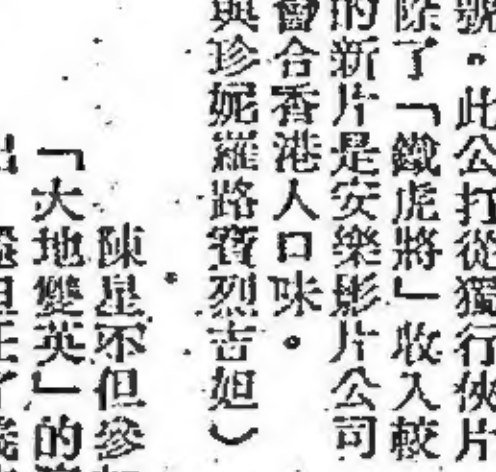 號。此公打從獨行俠片
除了「鐵虎將」收入較
的新片是安樂影片公司
會合香港人口味。
與珍妮羅路寶烈吉妲）
陳星不但參
「大地雙英」的
但任了